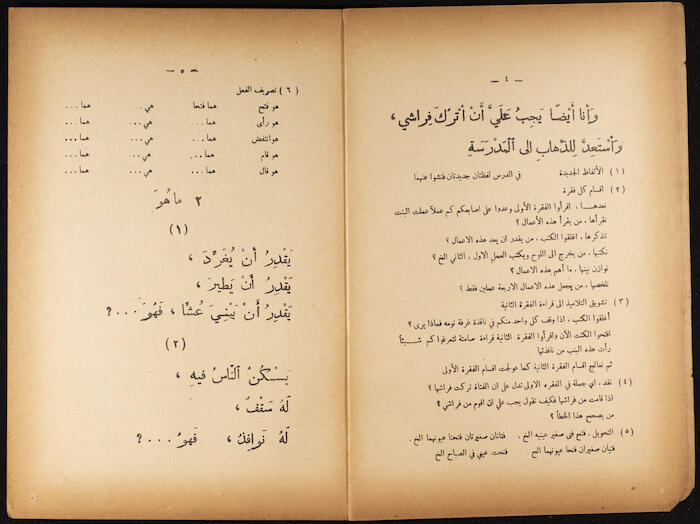 — ٤ —
وَأَنا أَيْضًا يَجِبُ عَلَيَّ أَنْ أَتْرُكَ فِراشي ،
وَأَسْتَعِدَّ لِلذَّهابِ الى الْمَدْرَسَةِ
(١) الألفاظ الجديدة في الدرس لفظتان جديدتان فتشوا عنهما
(٢) اقسام كل فقرة
نعدهـا . اقرأوا الفقرة الأولى وعدوا على اصابعكم كم عملاً عملت البنت
نقرأها ، من يقرأ هذه الأعمال ؟
نتذكرها ، اغلقوا الكتب ، من يقدر ان يعد هذه الاعمال ؟
نكتبها ، من يخرج الى اللوح ويكتب العمل الاول ، الثاني الخ ؟
نوازن بينها ، ما أهم هذه الاعمال ؟
نلخصها ، من يجمل هذه الاعمال الاربعة بعملين فقط ؟
(٣) تشويق التلاميذ الى قراءة الفقرة الثانية
أغلقوا الكتب ، اذا وقف كل واحد منكم في نافذة غرفة نومه فماذا يرى ؟
افتحوا الكتب الآن واقرأوا الفقرة الثانية قراءة صامتة لتعرفوا كم شـيئاً
رأت هذه البنت من نافذتها
ثم نعالج اقسام الفقرة الثانية كما عولجت اقسام الفقرة الأولى
(٤) نقد ، اي جملة في الفقرة الاولى تدل على ان الفتاة تركت فراشها ؟
اذا قامت من فراشها فكيف تقول يجب علي ان اقوم من فراشي ؟
من يصحح هذا الخطأ ؟
(٥) التحويل . فتح فتى صغير عينيه الخ . فتاتان صغيرتان فتحتا عيونهما الخ .
فتيان صغيران فتحا عيونهما الخ . فتحت عيني في الصباح الخ
— ٥ —
(٦) تصريف الفعل
هو فتح هما فتحا هي... هما ...
هو رأى هما... هي... هما ...
هو انتفض هما... هي... هما ...
هو قام هما... هي... هما ...
هو قال هما... هي... هما ...
٢ ما هُوَ
(١)
يَقْدِرُ أَنْ يُغَرِّدَ ،
يَقْدِرُ أَنْ يَطيرَ ،
يَقْدِرُ أَنْ يَبْنِيَ عُشًّا ، فَهُوَ...؟
(٢)
يَسْكُنُ النّاسُ فيهِ ،
لَهُ سَقْفٌ ،
لَهُ نَوافِذُ ، فَهُوَ ...؟